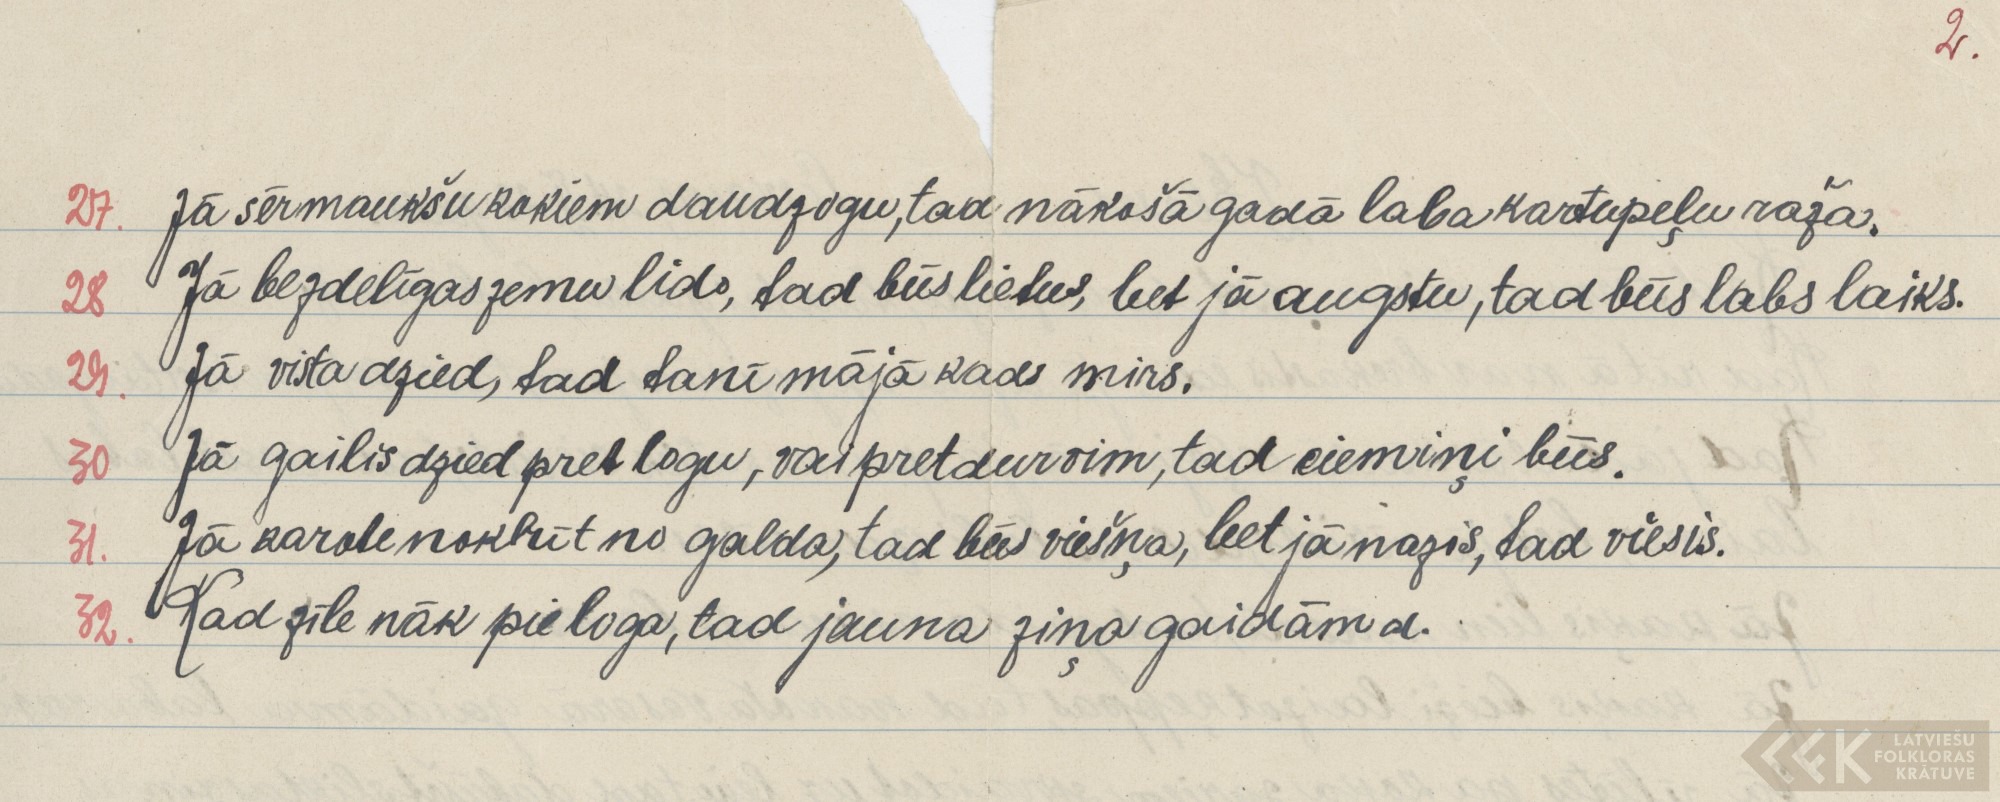 2.
27. Jā sērmaukšu kokiem daudz ogu, tad nākošā gadā laba kartupeļu raža.
28 Jā bezdelīgas zemu lido, tad būs lietus, bet jā augstu, tad būs labs laiks.
29. Jā vista dzied, tad tanī mājā kads mirs.
30 Jā gailis dzied pret logu, vai pret durvim, tad ciemiņi būs.
31. Jā karote nokrīt no galda, tad būs viešņa, bet jā nazis, tad viesis.
32. Kad zīle nāk pie loga, tad jauna ziņa gaidāma.
LATVIEŠU
FOLKLORAS
KRĀTUVE